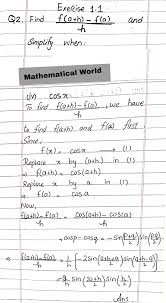 Exercise 1.1
Q2. Find f(a+h) - f(a) / h and
Simplify when:
Mathematical World
(iii) cosx
To find f(a+h) - f(a) / h, we have
to find f(a+h) and f(a) first.
Since,
f(x) = cosx → (1)
Replace x by (a+h) in (1)
⇒ f(a+h) = cos(a+h)
Replace x by a in (1)
⇒ f(a) = cosa
Now,
f(a+h) - f(a) / h = cos(a+h) - cos(a) / h
∴ cosp - cosq = -2sin(p+q / 2) sin(p-q / 2)
⇒ f(a+h) - f(a) / h = 1/h [-2sin(a+h+a / 2) sin(a+h-a / 2)]
= -2/h sin(2a+h / 2) sin(h/2)
Ans